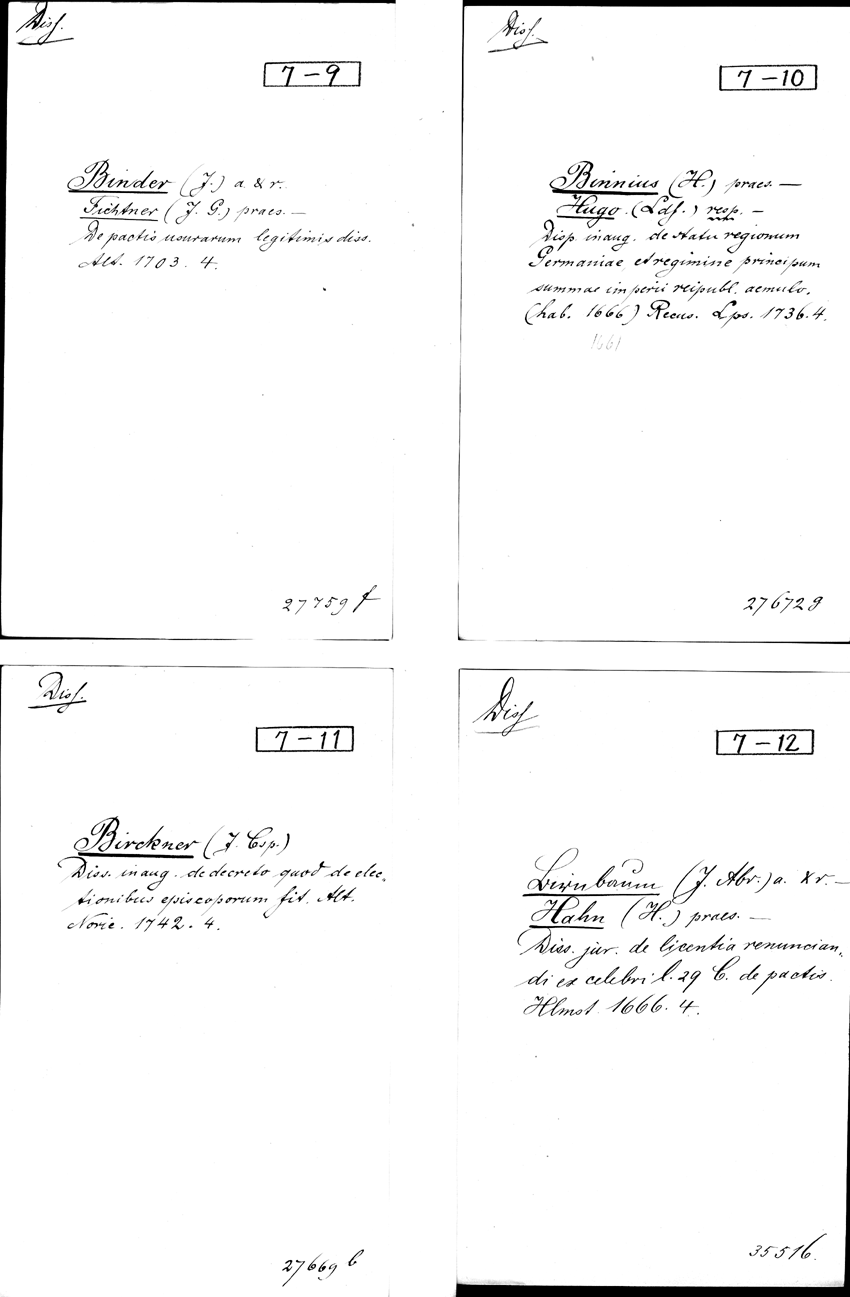 Diss.
7-9
Binder (J.) a. & r.
Fichtner (J. G.) praes. —
De pactis usurarum legitimis diss.
Alt. 1703. 4.
27759 f
Diss.
7-10
Binnius (H.) praes. —
Hugo. (Ldf.) resp. —
Disp. inaug. de statu regionum
Germaniae, et regimine principum
summae imperii reipubl. aemulo.
(hab. 1666) Recus. Lps. 1736. 4.
1661
27672 g
Diss.
7-11
Birckner (J. Csp.)
Diss. inaug. de decreto quod de elec-
tionibus episcoporum fit. Alt.
Noric. 1742. 4.
27669 b
Diss
7-12
Birnbaum (J. Abr.) a. & r. —
Hahn (H.) praes. —
Diss. jur. de licentia renuncian-
di ex celebri l. 29 C. de pactis.
Hlmst. 1666. 4.
35516.